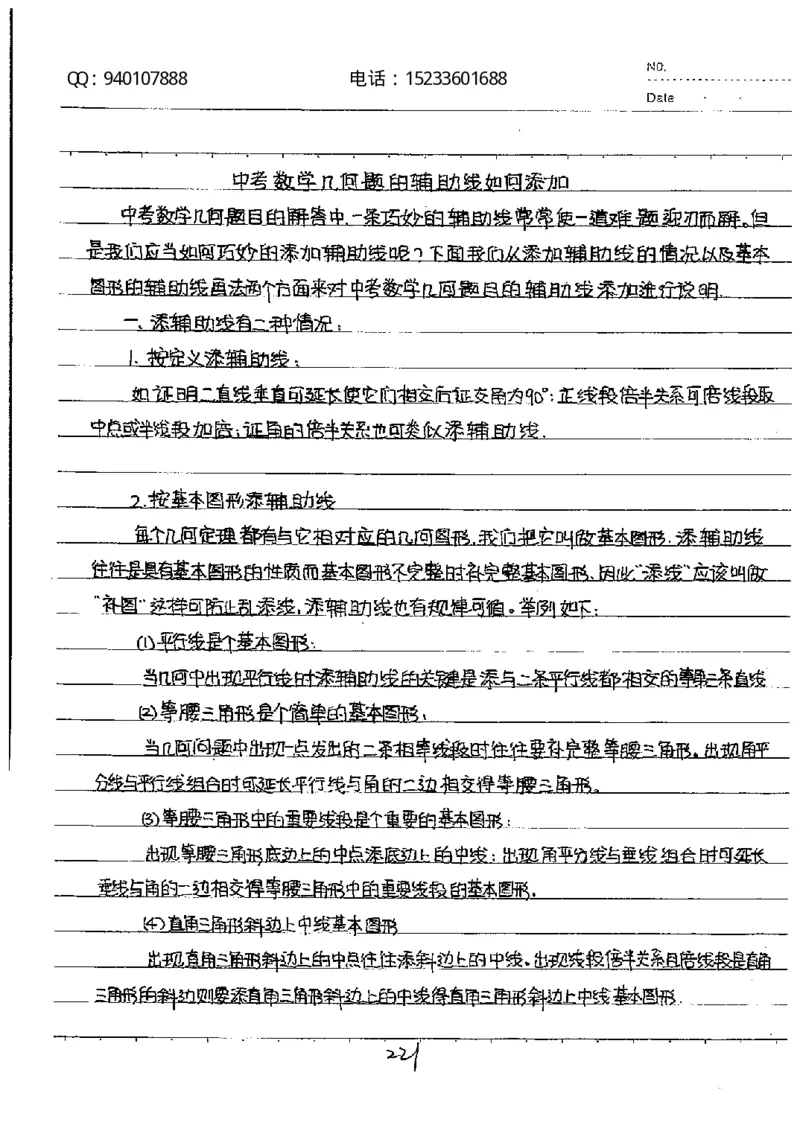 NO.
QQ：940107888 电话：15233601688
Date
中考数学几何题的辅助线如何添加
中考数学几何题目的解答中，一条巧妙的辅助线常常使一道难题迎刃而解。但
是我们应当如何巧妙的添加辅助线呢？下面我们从添加辅助线的情况以及基本
图形的辅助线画法两个方面来对中考数学几何题目的辅助线添加进行说明．
一、添辅助线有二种情况：
1．按定义添辅助线：
如证明二直线垂直可延长使它们相交后证交角为90°；正线段倍半关系可倍线段取
中点或半线段加倍；证角的倍半关系也可类似添辅助线．
2．按基本图形添辅助线
每个几何定理都有与它相对应的几何图形，我们把它叫做基本图形．添辅助线
往往是具有基本图形的性质而基本图形不完整时补完整基本图形，因此“添线”应该叫做
“补图”这样可防止乱添线，添辅助线也有规律可循。举例如下：
(1)平行线是个基本图形：
当几何中出现平行线时添辅助线的关键是添与二条平行线都相交的等第三条直线
(2)等腰三角形是个简单的基本图形：
当几何问题中出现一点发出的二条相等线段时往往要补完整等腰三角形。出现角平
分线与平行线组合时可延长平行线与角的二边相交得等腰三角形。
(3)等腰三角形中的重要线段是个重要的基本图形：
出现等腰三角形底边上的中点添底边上的中线；出现角平分线与垂线组合时可延长
垂线与角的二边相交得等腰三角形中的重要线段的基本图形。
(4)直角三角形斜边上中线基本图形
出现直角三角形斜边上的中点往往添斜边上的中线。出现线段倍半关系且倍线段是直角
三角形的斜边则要添直角三角形斜边上的中线得直角三角形斜边上中线基本图形．
221